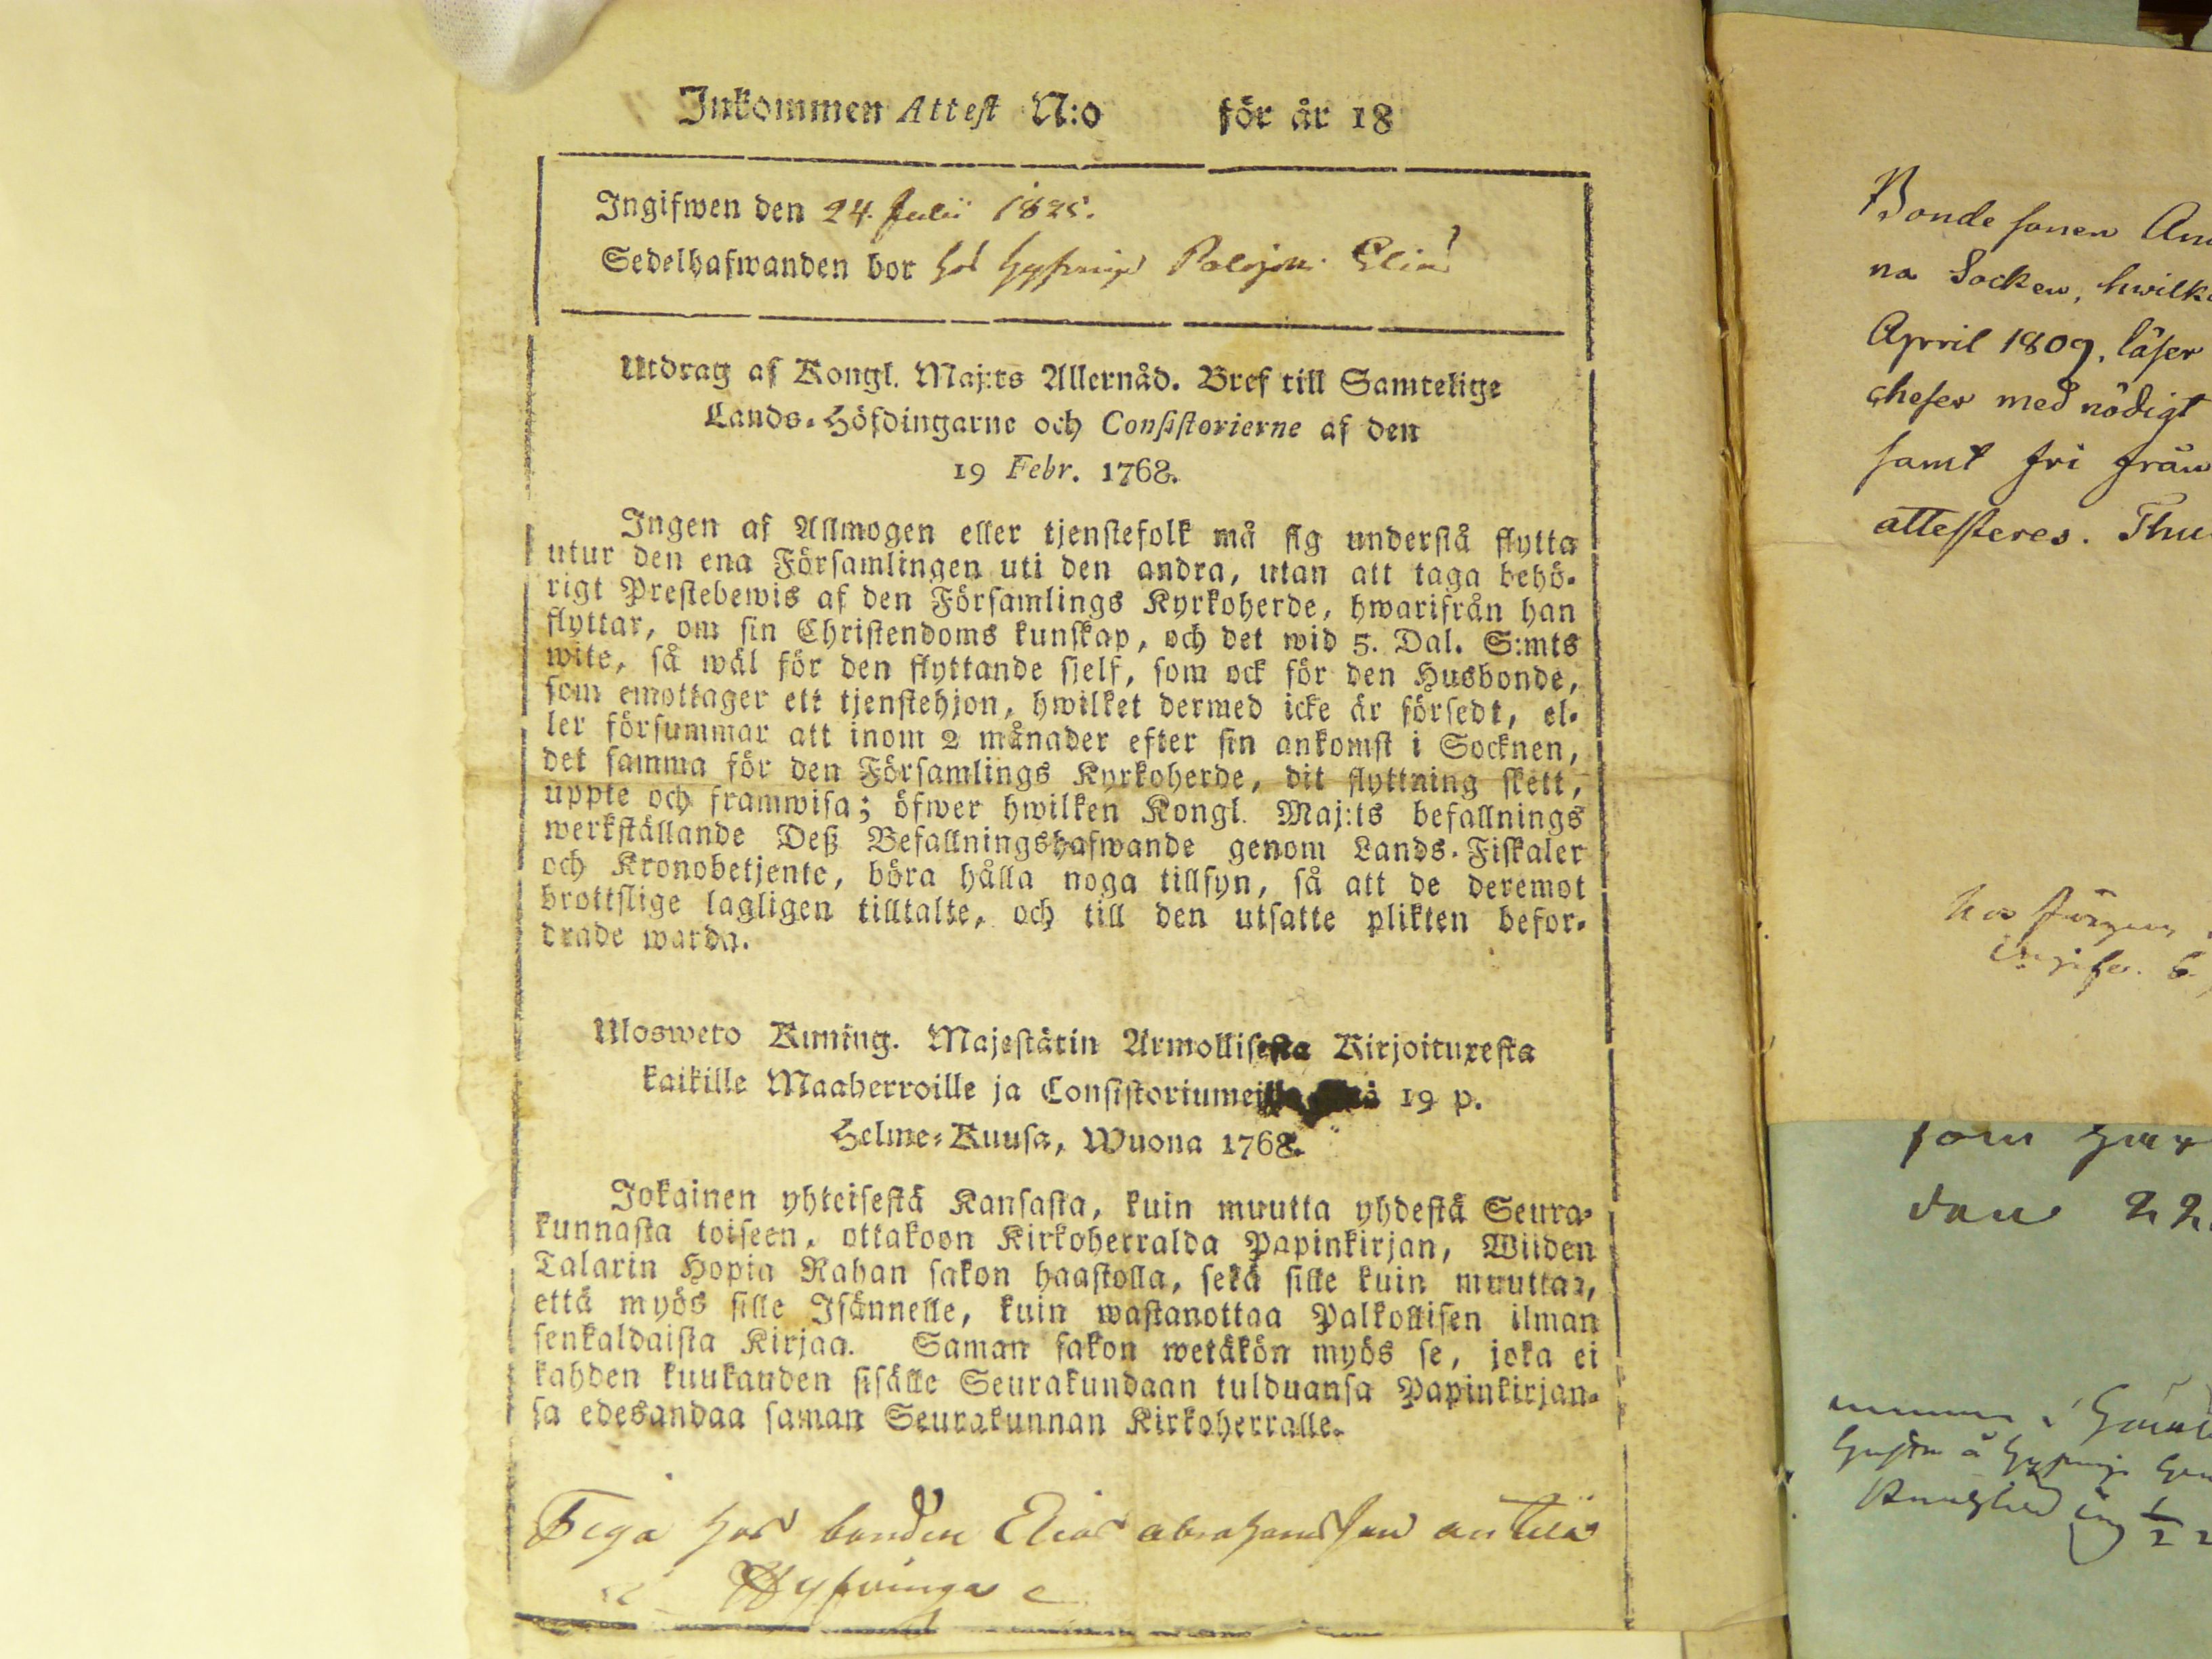 Inkommen Attest N:o för år 18
Ingifwen den 24. Julii 1825.
Sedelhafwanden bor hos
Utdrag af Kongl. Maj:ts Allernåd. Bref till Samtelige
Lands-Höfdingarne och Consistorierne af den
19 Febr. 1768.
Ingen af Allmogen eller tjenstefolk må sig understå flytta
utur den ena Församlingen uti den andra, utan att taga behö-
rigt Prestebewis af den Församlings Kyrkoherde, hwarifrån han
flyttar, om sin Christendoms kunskap, och det wid 5. Dal. S:mts
wite, så wäl för den flyttande sjelf, som ock för den Husbonde,
som emottager ett tjenstehjon, hwilket dermed icke är försedt, el-
ler försummar att inom 2 månader efter sin ankomst i Socknen,
det samma för den Församlings Kyrkoherde, dit flyttning skett,
uppte och framwisa; öfwer hwilken Kongl. Maj:ts befallnings
werkställande Deß Befallningshafwande genom Lands-Fiskaler
och Kronobetjente, böra hålla noga tillsyn, så att de deremot
brottslige lagligen tilltalte, och till den utsatte plikten befor-
drade warda.
Ulosweto Kuning. Majestätin Armollisesta Kirjoituxesta
kaikille Maaherroille ja 19 p.
Helme-Kuusa, Wuona 1768.
Jokainen yhteisestä Kansasta, kuin muutta yhdestä Seura-
kunnasta toiseen, ottakoon Kirkoherralda Papinkirjan, Wiiden
Talarin Hopia Rahan sakon haastolla, sekä sille kuin muuttaa,
että myös sille Isännelle, kuin wastanottaa Palkollisen ilman
senkaldaista Kirjaa. Saman sakon wetäkön myös se, joka ei
kahden kuukauden sisälle Seurakundaan tulduansa Papinkirjan-
sa edesandaa saman Seurakunnan Kirkoherralle.
hos bonden Elias abrahamsson
Bonde sonen
na Socken,
April 1809, läser
med nödigt
samt fri från
attesteres.
hos
som
den 22